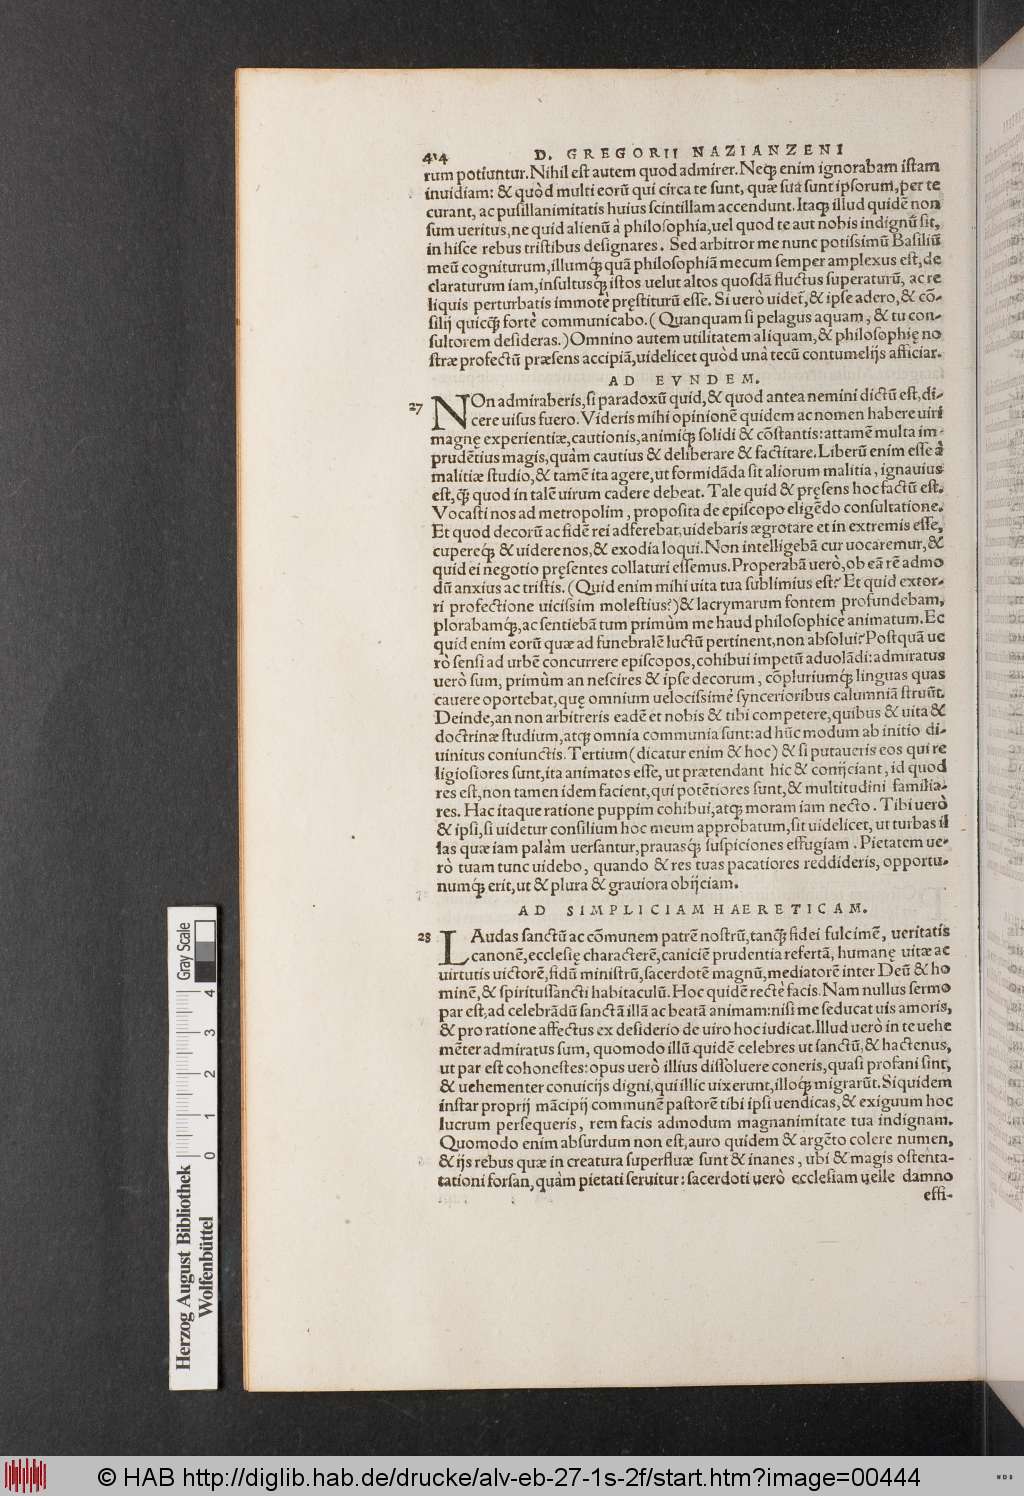 414 D. GREGORII NAZIANZENI
rum potiuntur. Nihil est autem quod admirer. Neq; enim ignorabam istam
inuidiam: & quòd multi eorũ qui circa te sunt, quæ sua sunt ipsorum, per te
curant, ac pusillanimitatis huius scintillam accendunt. Itaq; illud quidẽ non
sum ueritus, ne quid alienũ à philosophia, uel quod te aut nobis indignũ sit,
in hisce rebus tristibus designares. Sed arbitror me nunc potissimũ Basiliũ
meũ cogniturum, illumq́; quã philosophiã mecum semper amplexus est, de
claraturum iam, insultusq́; istos uelut altos quosdã fluctus superaturũ, ac re
liquis perturbatis immotè pręstiturũ esse. Si uerò uidet̃, & ipse adero, & cõ-
silij quicq̃; fortè communicabo. (Quanquam si pelagus aquam, & tu con-
sultorem desideras.) Omnino autem utilitatem aliquam, & philosophię no
stræ profectũ præsens accipiã, uidelicet quòd unà tecũ contumelijs afficiar.
AD EVNDEM.
27 NOn admiraberis, si paradoxũ quid, & quod antea nemini dictũ est, di-
cere uisus fuero. Videris mihi opinionẽ quidem ac nomen habere uiri
magnę experientiæ, cautionis, animiq́; solidi & cõstantis: attamẽ multa im-
prudẽtius magis, quàm cautius & deliberare & factitare. Liberũ enim esse à
malitiæ studio, & tamẽ ita agere, ut formidãda sit aliorum malitia, ignauius
est, q̃; quod in talẽ uirum cadere debeat. Tale quid & pręsens hoc factũ est.
Vocasti nos ad metropolim, proposita de episcopo eligẽdo consultatione.
Et quod decorũ ac fidẽ rei adferebat, uidebaris ægrotare et in extremis esse,
cupereq́; & uidere nos, & exodia loqui. Non intelligebã cur uocaremur, &
quid ei negotio pręsentes collaturi essemus. Properabã uerò, ob eã rẽ admo
dũ anxius ac tristis. (Quid enim mihi uita tua sublimius est? Et quid extor-
ri profectione uicissim molestius?) & lacrymarum fontem profundebam,
plorabamq́;, ac sentiebã tum primùm me haud philosophicè animatum. Ec
quid enim eorũ quæ ad funebralẽ luctũ pertinent, non absolui? Postquã ue
rò sensi ad urbẽ concurrere episcopos, cohibui impetũ aduolãdi: admiratus
uerò sum, primùm an nescires & ipse decorum, cõpluriumq́; linguas quas
cauere oportebat, quę omnium uelocissimè syncerioribus calumniã struũt.
Deinde, an non arbitreris eadẽ et nobis & tibi competere, quibus & uita &
doctrinæ studium, atq; omnia communia sunt: ad hũc modum ab initio di-
uinitus coniunctis. Tertium (dicatur enim & hoc) & si putaueris eos qui re
ligiosiores sunt, ita animatos esse, ut prætendant hic & conijciant, id quod
res est, non tamen idem facient, qui potẽtiores sunt, & multitudini familia-
res. Hac itaque ratione puppim cohibui, atq; moram iam necto. Tibi uerò
& ipsi, si uidetur consilium hoc meum approbatum, sit uidelicet, ut turbas il
las quæ iam palàm uersantur, prauasq́; suspiciones effugiam. Pietatem ue-
rò tuam tunc uidebo, quando & res tuas pacatiores reddideris, opportu-
numq́; erit, ut & plura & grauiora obijciam.
AD SIMPLICIAM HAERETICAM.
28 LAudas sanctũ ac cõmunem patrẽ nostrũ, tanq̃; fidei fulcimẽ, ueritatis
canonẽ, ecclesię characterẽ, caniciẽ prudentia refertã, humanę uitæ ac
uirtutis uictorẽ, fidũ ministrũ, sacerdotẽ magnũ, mediatorẽ inter Deũ & ho
minẽ, & spiritussancti habitaculũ. Hoc quidẽ rectè facis. Nam nullus sermo
par est, ad celebrãdũ sanctã illã ac beatã animam: nisi me seducat uis amoris,
& pro ratione affectus ex desiderio de uiro hoc iudicat. Illud uerò in te uehe
mẽter admiratus sum, quomodo illũ quidẽ celebres ut sanctũ, & hactenus,
ut par est cohonestes: opus uerò illius dissoluere coneris, quasi profani sint,
& uehementer conuicijs digni, qui illic uixerunt, illoq́; migrarũt. Si quidem
instar proprij mãcipij communẽ pastorẽ tibi ipsi uendicas, & exiguum hoc
lucrum persequeris, rem facis admodum magnanimitate tua indignam.
Quomodo enim absurdum non est, auro quidem & argẽto colere numen,
& ijs rebus quæ in creatura superfluæ sunt & inanes, ubi & magis ostenta-
tationi forsan, quàm pietati seruitur: sacerdoti uerò ecclesiam uelle damno
effi-
Herzog August Bibliothek
Wolfenbüttel
0 1 2 3 4
Gray Scale
© HAB http://diglib.hab.de/drucke/alv-eb-27-1s-2f/start.htm?image=00444